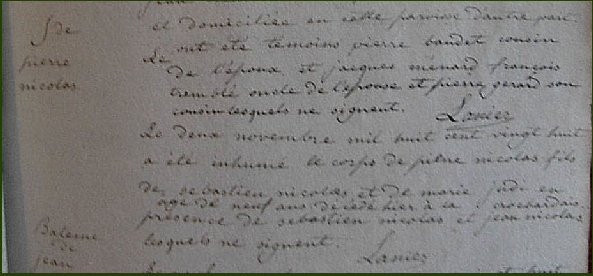 et domiciliée en cette paroisse d'autre part.
ont été temoins pierre baudet cousin
de l'époux et jacques ménard françois
tremblé oncle de l'épouse et pierre gerard son
cousin lesquels ne signent. Lanier
S de
pierre
nicolas
Le deux novembre mil huit cent vingt huit
a été inhumé le corps de pierre nicolas fils
de sebastien nicolas et de marie en
age de neuf ans décédé hier à la
présence de sebastien nicolas et jean nicolas
lesquels ne signent. Lanier
Bateme
de
jean